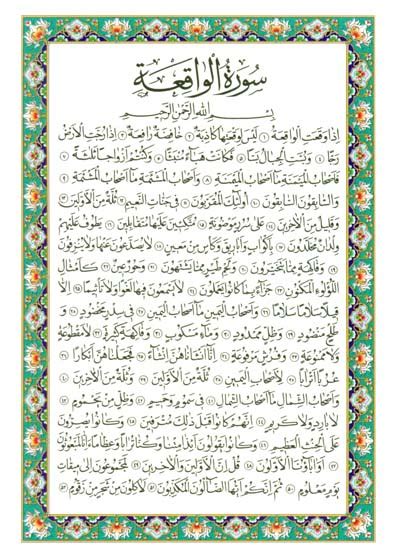 سورة الواقعة
بسم الله الرحمن الرحيم
إذا وقعت الواقعة ١ ليس لوقعتها كاذبة ٢ خافضة رافعة ٣ إذا رجت الأرض
رجا ٤ وبست الجبال بسا ٥ فكانت هباء منبثا ٦ وكنتم أزواجا ثلثة ٧
فأصحاب الميمنة ما أصحاب الميمنة ٨ وأصحاب المشئمة ما أصحاب المشئمة ٩
والسابقون السابقون ١٠ أولئك المقربون ١١ في جنات النعيم ١٢ ثلة من الأولين ١٣
وقليل من الآخرين ١٤ على سرر موضونة ١٥ متكئين عليها متقابلين ١٦ يطوف عليهم
ولدان مخلدون ١٧ بأكواب وأباريق وكأس من معين ١٨ لا يصدعون عنها ولا ينزفون
١٩ وفاكهة مما يتخيرون ٢٠ ولحم طير مما يشتهون ٢١ وحور عين ٢٢ كأمثال
اللؤلؤ المكنون ٢٣ جزاء بما كانوا يعملون ٢٤ لا يسمعون فيها لغوا ولا تأثيما ٢٥ إلا
قيلا سلاما سلاما ٢٦ وأصحاب اليمين ما أصحاب اليمين ٢٧ في سدر مخضود ٢٨ و
طلح منضود ٢٩ وظل ممدود ٣٠ وماء مسكوب ٣١ وفاكهة كثيرة ٣٢ لا مقطوعة
ولا ممنوعة ٣٣ وفرش مرفوعة ٣٤ إنا أنشأناهن إنشاء ٣٥ فجعلناهن أبكارا ٣٦
عربا أترابا ٣٧ لأصحاب اليمين ٣٨ ثلة من الأولين ٣٩ وثلة من الآخرين ٤٠
وأصحاب الشمال ما أصحاب الشمال ٤١ في سموم وحميم ٤٢ وظل من يحموم ٤٣
لا بارد ولا كريم ٤٤ إنهم كانوا قبل ذلك مترفين ٤٥ وكانوا يصرون
على الحنث العظيم ٤٦ وكانوا يقولون أئذا متنا وكنا ترابا وعظاما أءنا لمبعوثون
٤٧ أو آباؤنا الأولون ٤٨ قل إن الأولين والآخرين ٤٩ لمجموعون إلى ميقات
يوم معلوم ٥٠ ثم إنكم أيها الضالون المكذبون ٥١ لآكلون من شجر من زقوم ٥٢